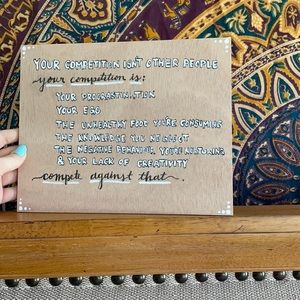 YOUR COMPETITION ISN'T OTHER PEOPLE
your competition is:
YOUR PROCRASTINATION
YOUR EGO
THE UNHEALTHY FOOD YOU'RE CONSUMING
THE KNOWLEDGE YOU NEGLECT
THE NEGATIVE BEHAVIOUR YOU'RE NURTURING
& YOUR LACK OF CREATIVITY
compete against that